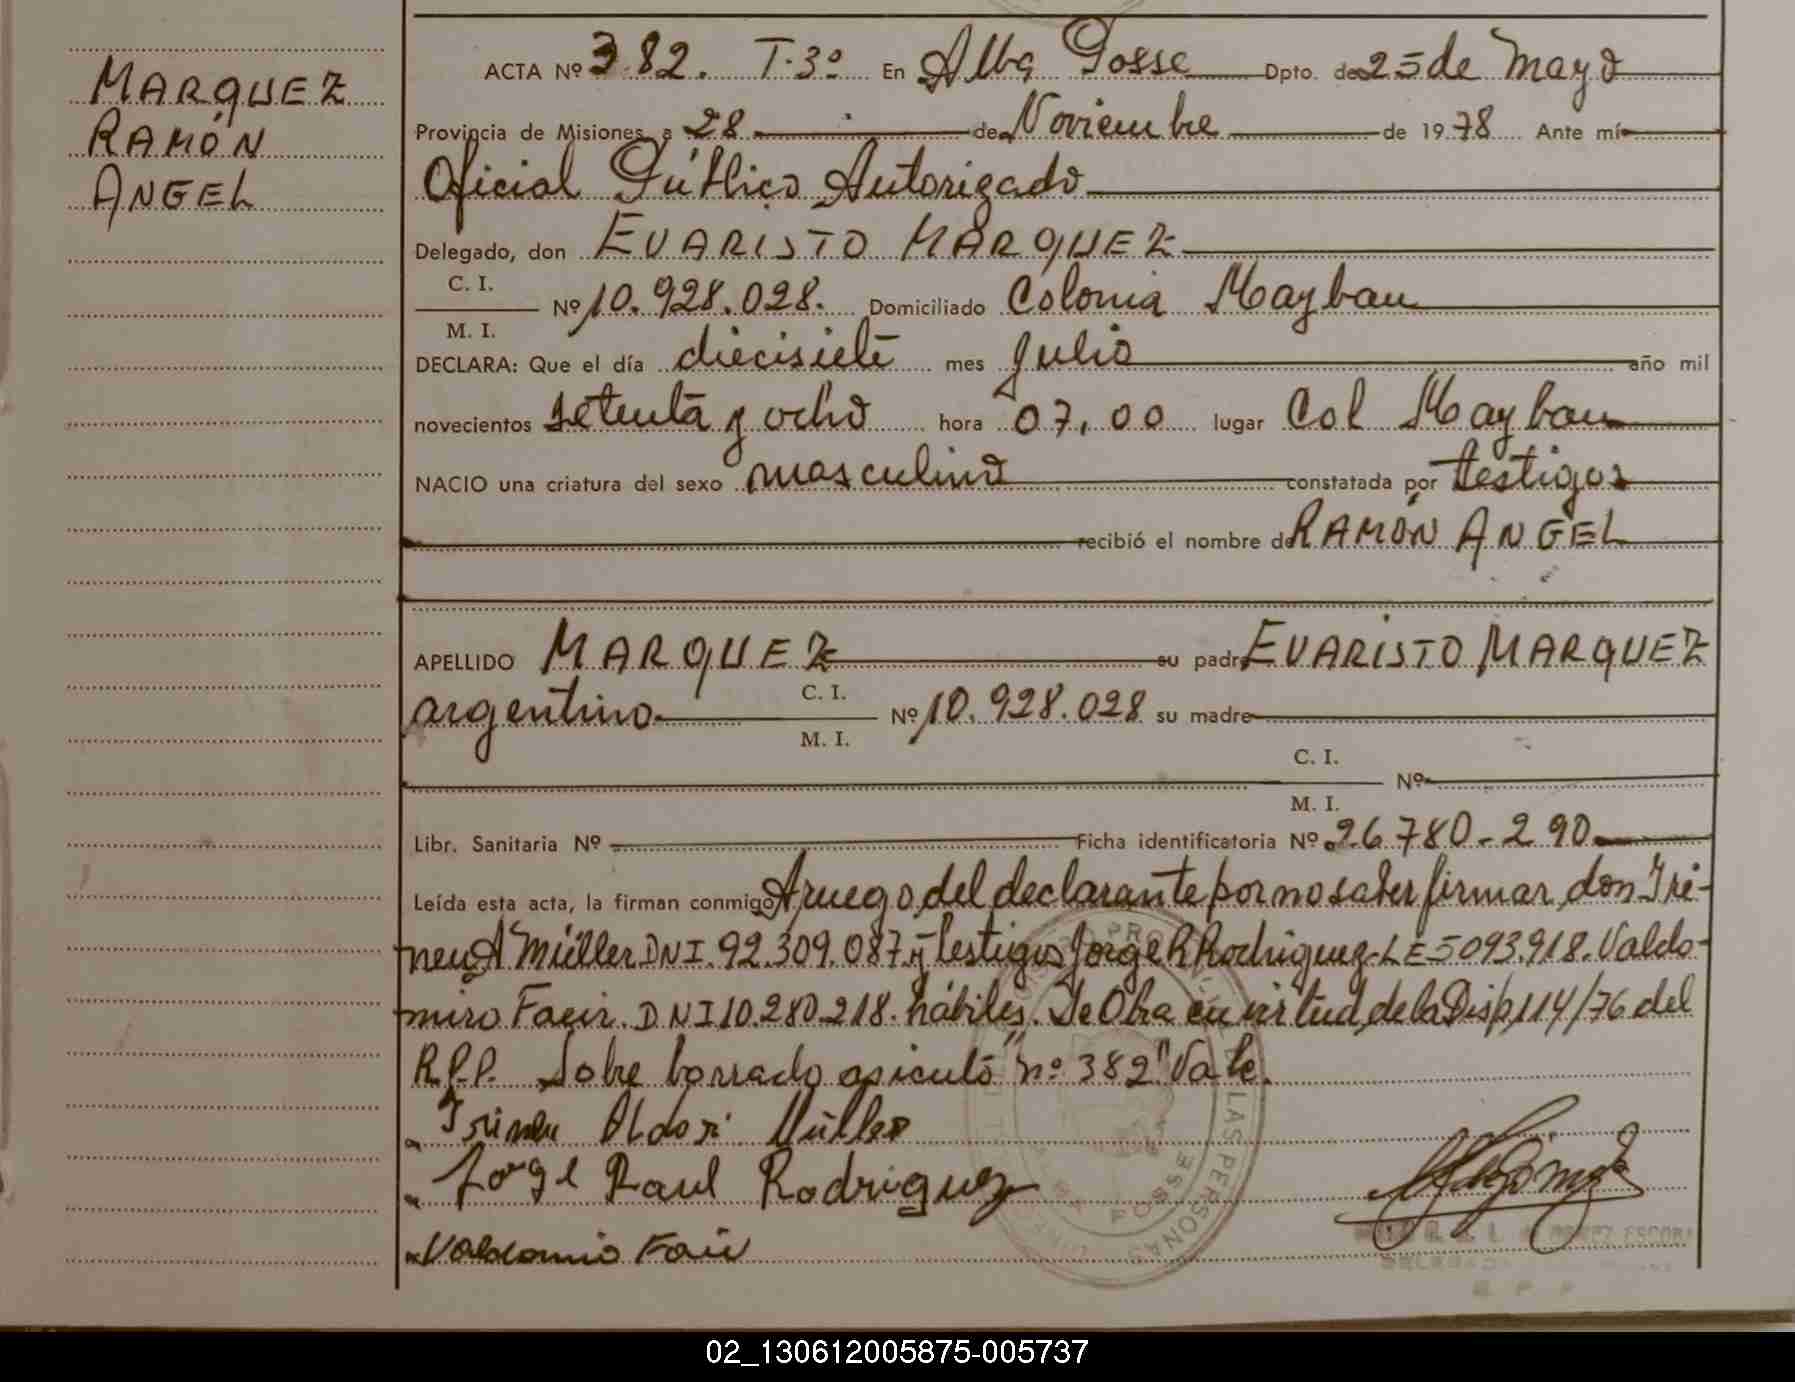 MARQUEZ
RAMÓN
ANGEL
ACTA Nº 382. T.3º En Alba Posse Dpto. de 25 de Mayo
Provincia de Misiones, a 28 de Noviembre de 1978 Ante mí
Oficial Público Autorizado
Delegado, don EVARISTO MARQUEZ
C. I.
Nº 10.928.028. Domiciliado Colonia Maybau
M. I.
DECLARA: Que el día diecisiete mes Julio año mil
novecientos setenta y ocho hora 07,00 lugar Col Maybau
NACIO una criatura del sexo masculino constatada por testigos
recibió el nombre de RAMÓN ANGEL
APELLIDO MARQUEZ su padre EVARISTO MARQUEZ
argentino. C. I. Nº 10.928.028 su madre
M. I.
C. I.
Nº
M. I.
Libr. Sanitaria Nº Ficha identificatoria Nº 26.780-290
Leída esta acta, la firman conmigo A ruego del declarante por no saber firmar don Iri-
neu A Müller DNI. 92.309.087 y testigos Jorge R Rodriguez LE 5093.918. Valdo-
miro Fair. DNI 10.280.218. hábiles. Se Obra en virtud de la Disp. 114/76 del
R.P.P. Sobre borrado "nº 382" Vale.
Irineu Aldori Müller
Jorge Raul Rodriguez
Valdomiro Fair
POSSE
LAS PERSONAS
02_130612005875-005737